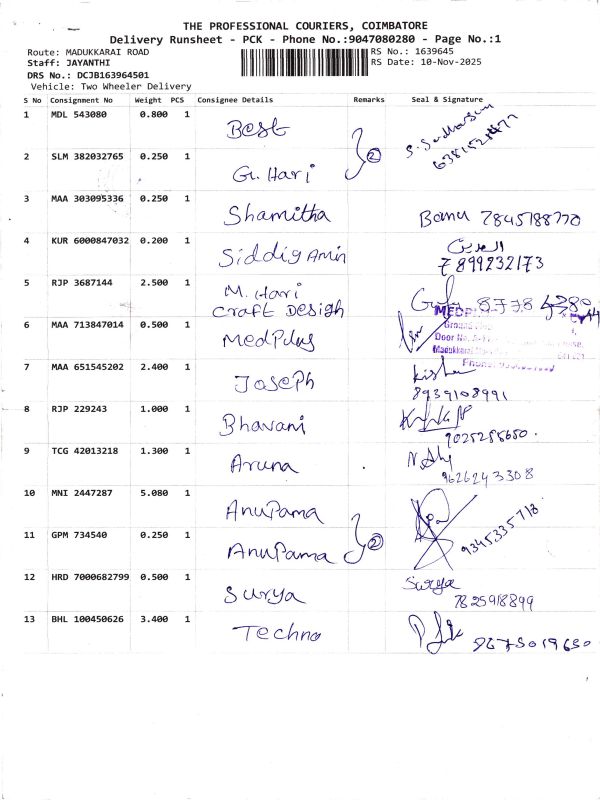 THE PROFESSIONAL COURIERS, COIMBATORE
Delivery Runsheet - PCK - Phone No.:9047080280 - Page No.:1
Route: MADUKKARAI ROAD RS No.: 1639645
Staff: JAYANTHI RS Date: 10-Nov-2025
DRS No.: DCJB163964501
Vehicle: Two Wheeler Delivery
S No Consignment No Weight PCS Consignee Details Remarks Seal & Signature
1 MDL 543080 0.800 1 Best
2 SLM 382032765 0.250 1 G. Hari 2
3 MAA 303095336 0.250 1 Shamitha 7845188770
4 KUR 6000847032 0.200 1 Siddig Amin
7899232173
5 RJP 3687144 2.500 1 M. Hari
Craft Design
6 MAA 713847014 0.500 1 MedPlus
7 MAA 651545202 2.400 1 Joseph
8939108991
8 RJP 229243 1.000 1 Bhavani
9025285650.
9 TCG 42013218 1.300 1 Aruna
9626243308
10 MNI 2447287 5.080 1 Anupama
11 GPM 734540 0.250 1 Anupama 2 9345335718
12 HRD 7000682799 0.500 1 Surya Surya
7825918899
13 BHL 100450626 3.400 1 Techno 9675019650